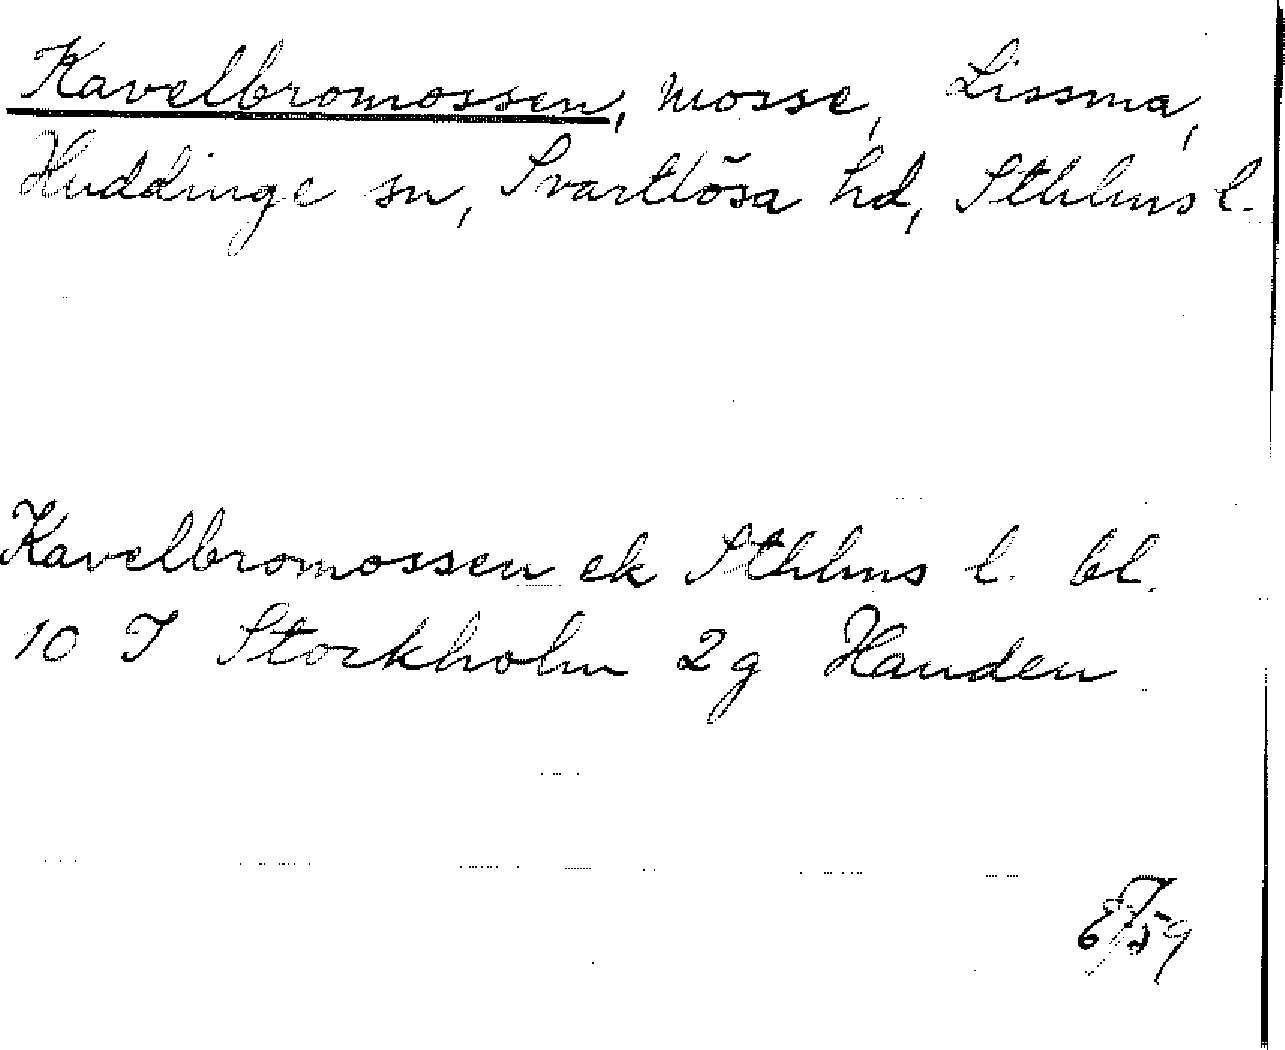 Kavelbromossen, mosse, Lissma,
Huddinge sn, Svartlösa hd, Sthlms l.
Kavelbromossen ek Sthlms l. bl.
10 I Stockholm 2g Handen